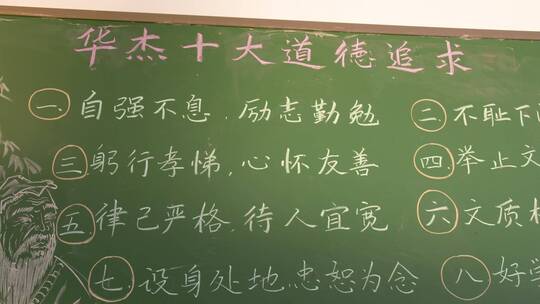 华杰十大道德追求
一、自强不息，励志勤勉 二、不耻下
三、躬行孝悌，心怀友善 四、举止文
五、律己严格，待人宜宽 六、文质
七、设身处地，忠恕为念 八、好学